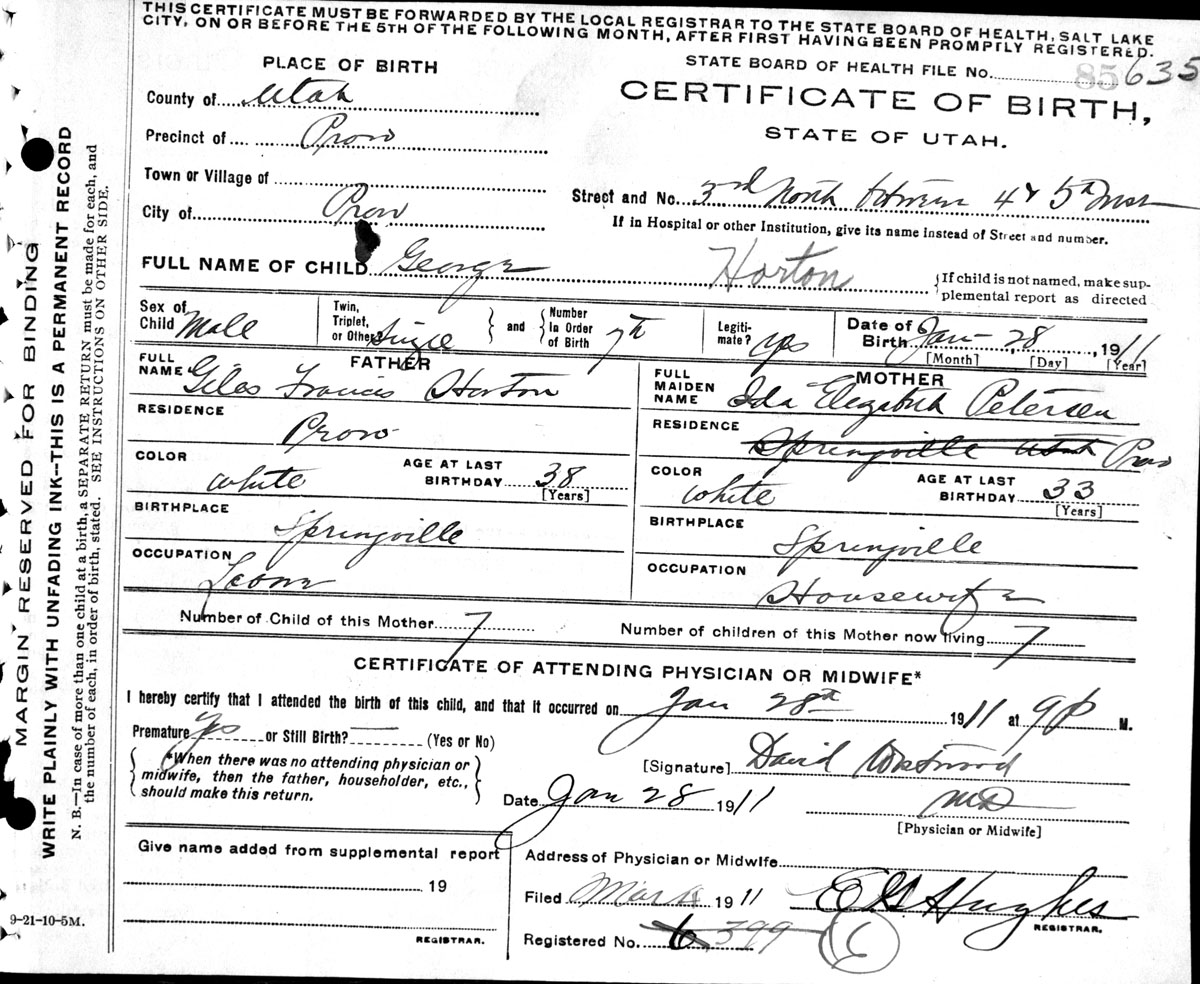 THIS CERTIFICATE MUST BE FORWARDED BY THE LOCAL REGISTRAR TO THE STATE BOARD OF HEALTH, SALT LAKE
CITY, ON OR BEFORE THE 5TH OF THE FOLLOWING MONTH, AFTER FIRST HAVING BEEN PROMPTLY REGISTERED.
MARGIN RESERVED FOR BINDING
WRITE PLAINLY WITH UNFADING INK--THIS IS A PERMANENT RECORD
N. B.—In case of more than one child at a birth, a SEPARATE RETURN must be made for each, and
the number of each, in order of birth, stated. SEE INSTRUCTIONS ON OTHER SIDE.
PLACE OF BIRTH
STATE BOARD OF HEALTH FILE No. 85 635
County of Utah
CERTIFICATE OF BIRTH,
Precinct of Provo
STATE OF UTAH.
Town or Village of
Street and No. 3rd North between 4 & 5th West
City of Provo
If in Hospital or other Institution, give its name instead of Street and number.
FULL NAME OF CHILD George Horton
{If child is not named, make sup-
plemental report as directed
Sex of Child Male
Twin, Triplet, or Other? Single
and
Number In Order of Birth 7th
Legiti-mate? yes
Date of Birth Jan- 28, 1911
[Month] [Day] [Year]
FATHER
FULL NAME Giles Francis Horton
RESIDENCE
Provo
COLOR white
AGE AT LAST BIRTHDAY 38
[Years]
BIRTHPLACE
Springville
OCCUPATION
MOTHER
FULL MAIDEN NAME Ida Elizabeth Petersen
RESIDENCE
Springville Utah Provo
COLOR white
AGE AT LAST BIRTHDAY 33
[Years]
BIRTHPLACE
Springville
OCCUPATION
Housewife
Number of Child of this Mother 7
Number of children of this Mother now living 7
CERTIFICATE OF ATTENDING PHYSICIAN OR MIDWIFE*
I hereby certify that I attended the birth of this child, and that it occurred on Jan 28th 1911 at 9p M.
Premature yes or Still Birth? — (Yes or No)
{*When there was no attending physician or
midwife, then the father, householder, etc.,
should make this return.}
[Signature] David Westwood
Date Jan 28 1911
MD
[Physician or Midwife]
Give name added from supplemental report
19
REGISTRAR.
Address of Physician or Midwife
Filed Mar 1911
E G Hughes
REGISTRAR.
Registered No. 6 399 6
9-21-10-5M.